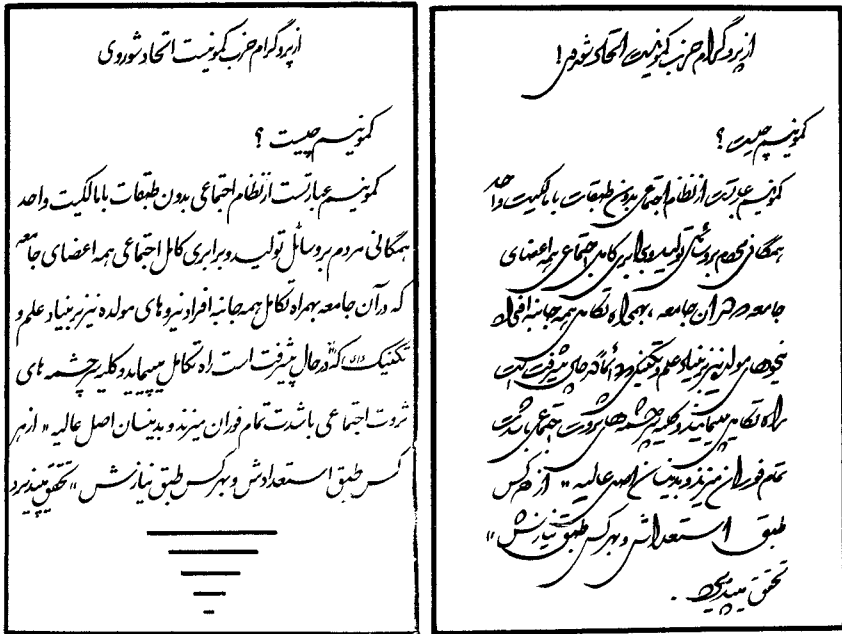 از پروگرام حزب کمونیست اتحاد شوروی!
کمونیسم چیست ؟
کمونیسم عبارتست از نظام اجتماعی بدون طبقات با مالکیت واحد
همگانی مردم بر وسائل تولید و برابری کامل اجتماعی همه اعضای
جامعه که در آن جامعه ، بهمراه تکامل همه جانبه افراد
نیروهای مولده نیز بر بنیاد علم و تکنیک دائماً که در حال پیشرفت است
راه تکامل میپیماید و کلیه سرچشمه های ثروت اجتماعی باشدت
تمام فوران میزند و بدینسان اصل عالیه " از هر کس
طبق استعدادش و بهر کس طبق نیازش "
تحقق میپذیرد .
از پروگرام حزب کمونیست اتحاد شوروی
کمونیسم چیست ؟
کمونیسم عبارتست از نظام اجتماعی بدون طبقات با مالکیت واحد
همگانی مردم بر وسائل تولید و برابری کامل اجتماعی همه اعضای جامعه
که در آن جامعه بهمراه تکامل همه جانبه افراد نیروهای مولده نیز بر بنیاد علم و
تکنیک که در حال پیشرفت است راه تکامل میپیماید و کلیه سرچشمه های
ثروت اجتماعی باشدت تمام فوران میزند و بدینسان اصل عالیه " از هر
کس طبق استعدادش و بهر کس طبق نیازش " تحقق میپذیرد